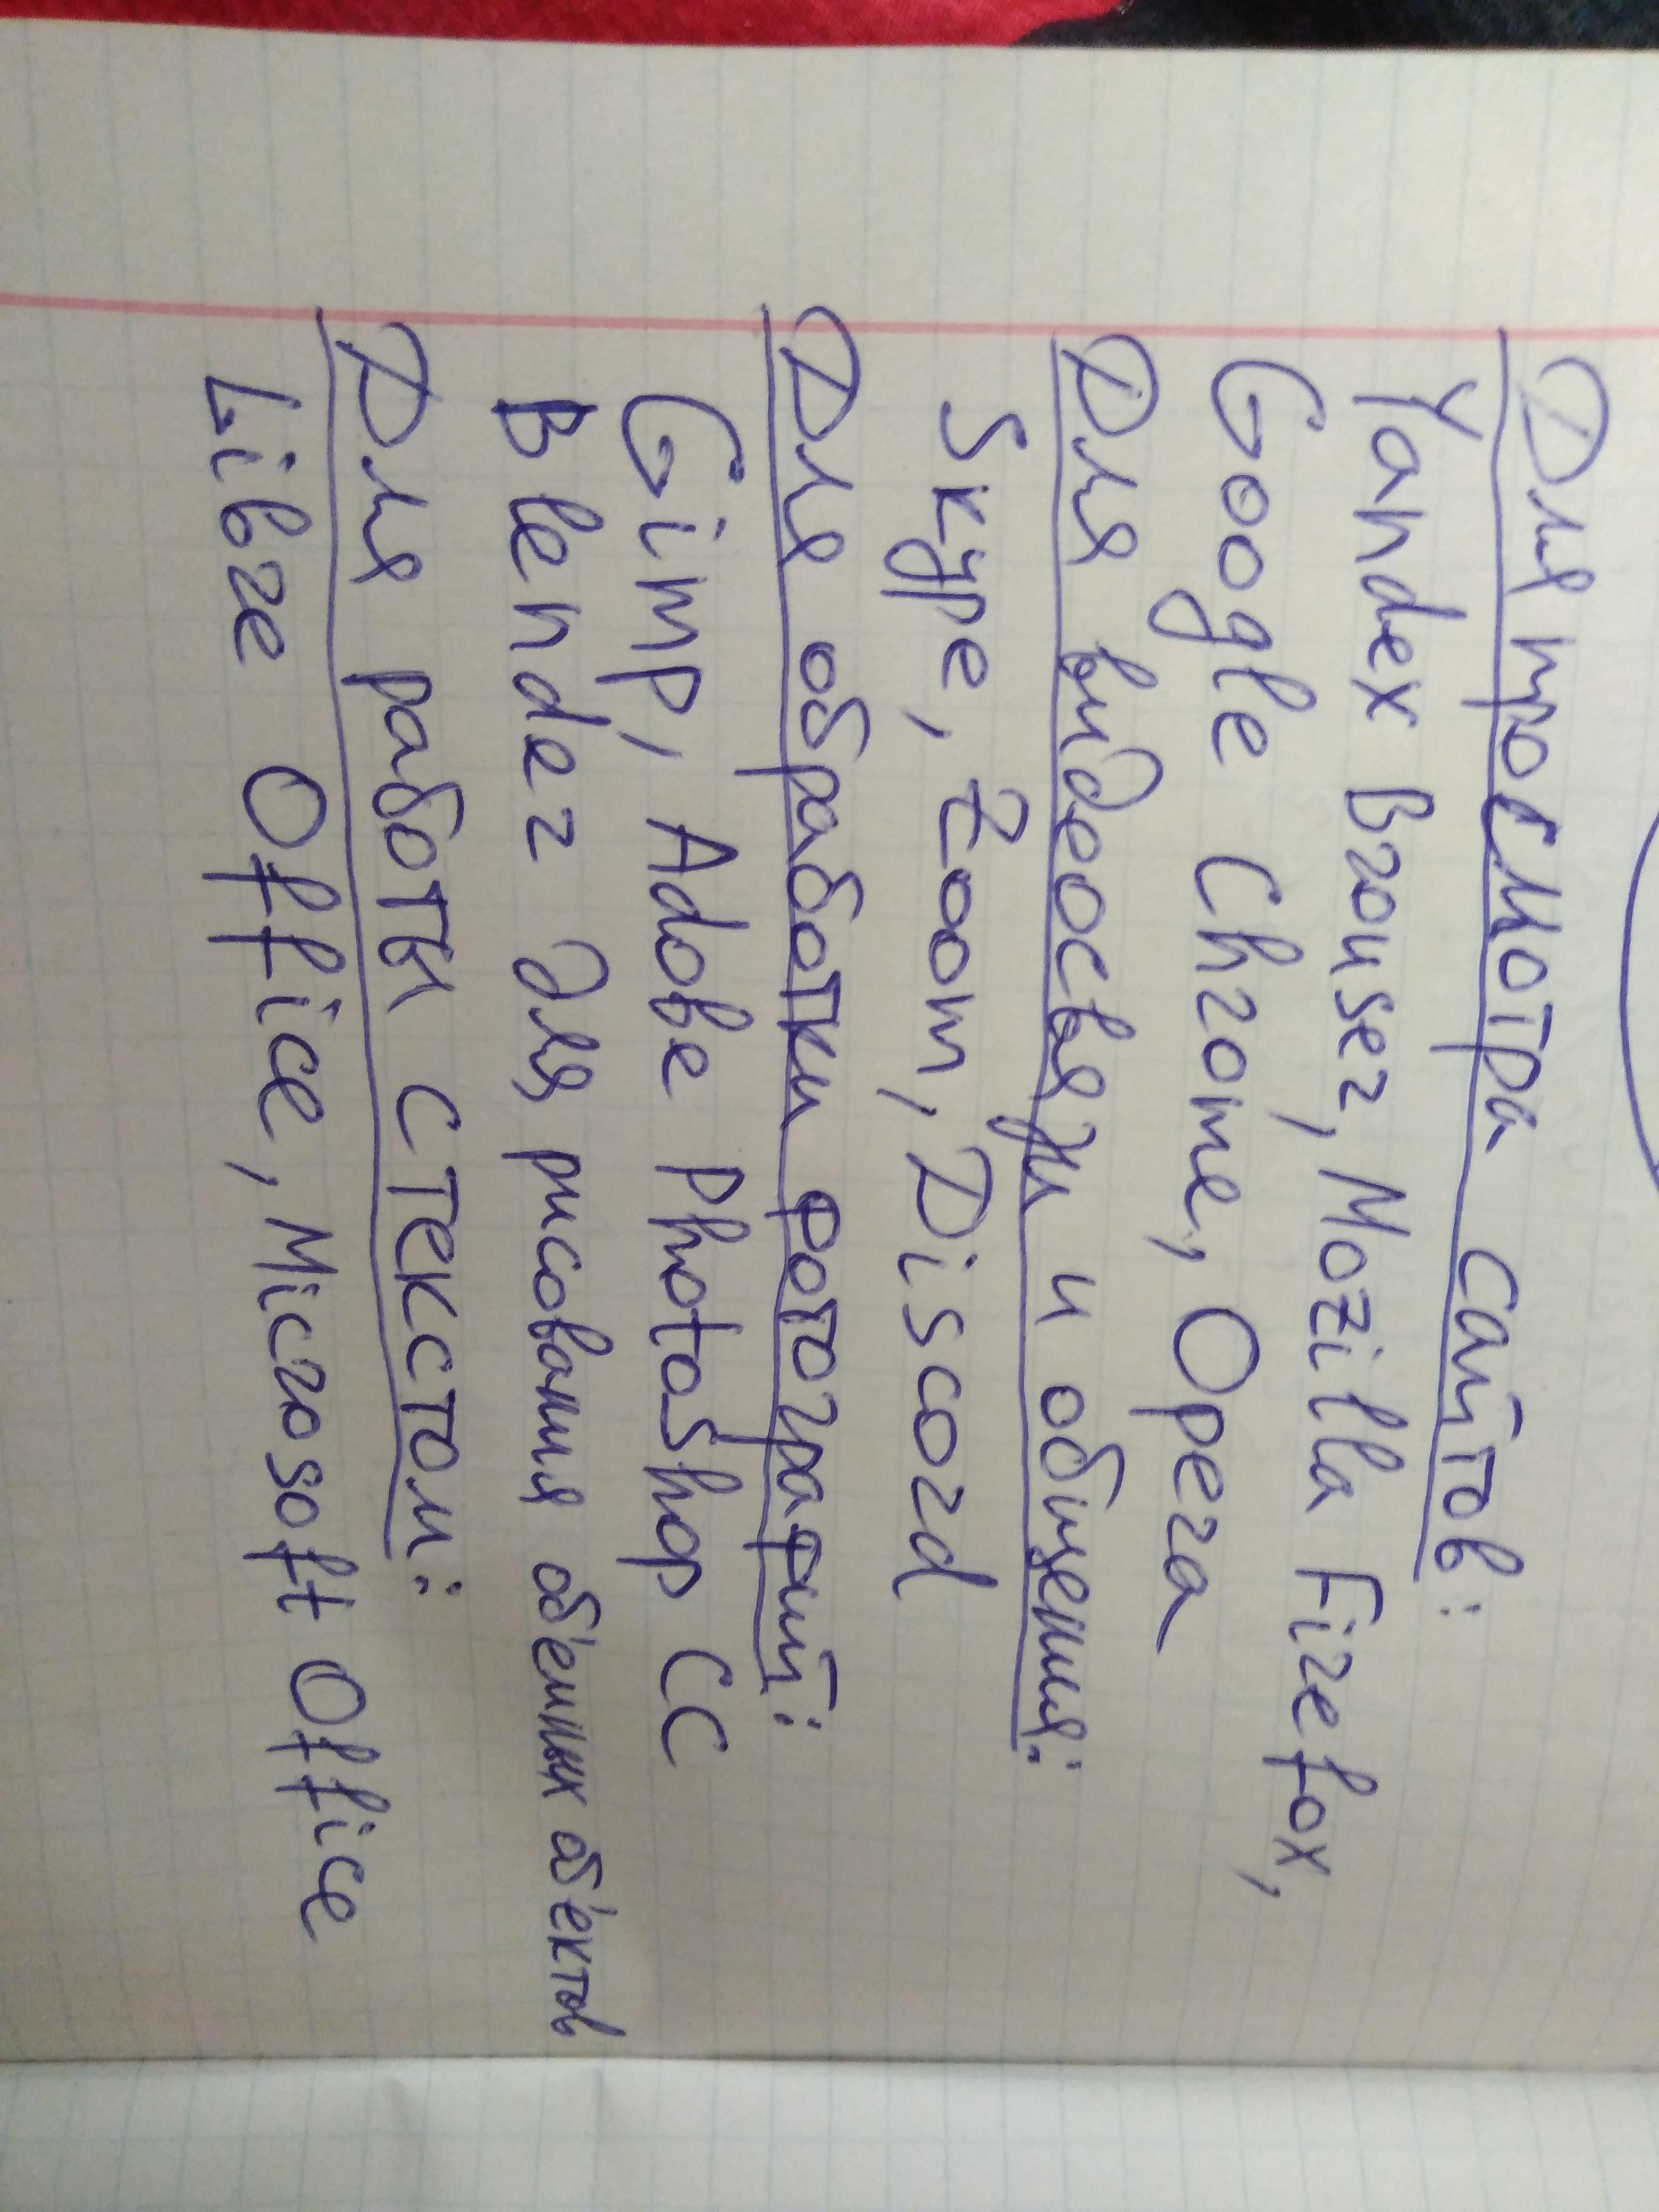 Для просмотра сайтов:
Yandex Brouser, Mozilla Firefox,
Google Chrome, Opera
Для видеосвязи и общения:
Skype, Zoom, Discord
Для обработки фотографий:
Gimp, Adobe Photoshop CC
Blender для рисования объемных объектов
Для работы с текстом:
Libre Office, Microsoft Office